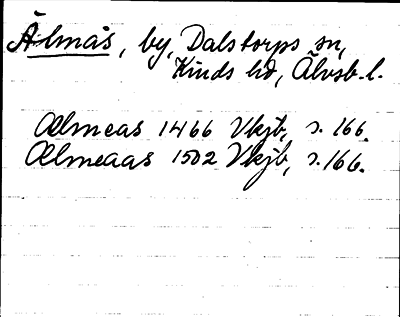 Älmås, by, Dalstorps sn,
Kinds hd, Älvsb. l.
Œlmeas 1466 Vkjb, s. 166.
Œlmeaas 1502 Vkjb, s. 166.